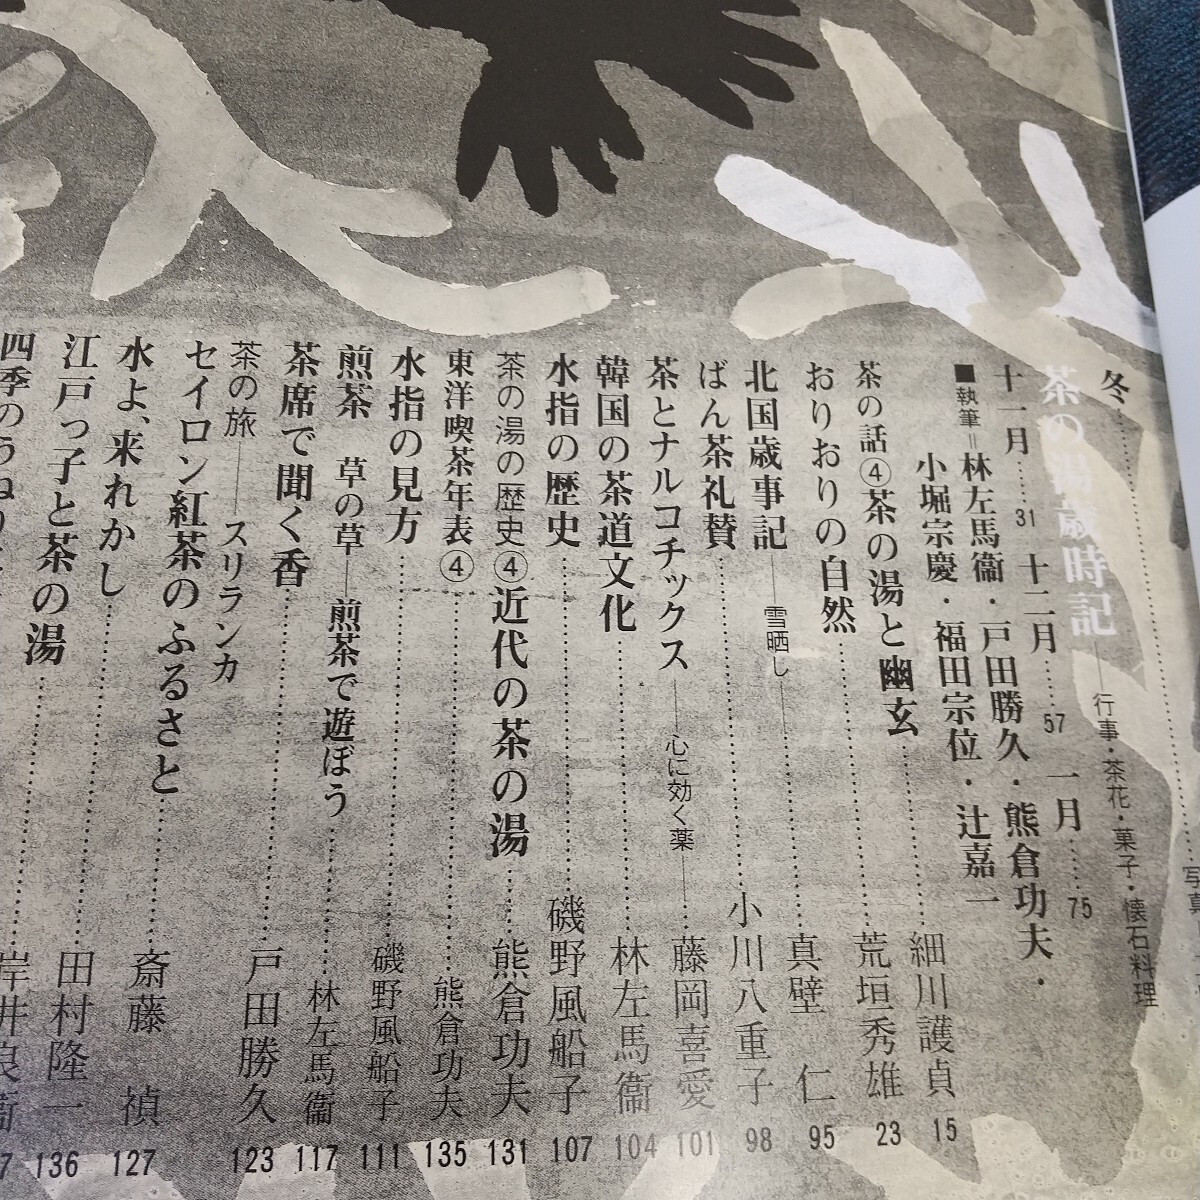 冬
茶の湯歳時記――行事・茶花・菓子・懐石料理
十一月……31 十二月……57 一月……75
■執筆＝林左馬衞・戸田勝久・熊倉功夫・
小堀宗慶・福田宗位・辻嘉一
茶の話④茶の湯と幽玄……細川護貞 15
おりおりの自然……荒垣秀雄 23
北国歳事記――雪晒し……真壁 仁 95
ばん茶礼賛……小川八重子 98
茶とナルコチックス――心に効く薬――藤岡喜愛 101
韓国の茶道文化……林左馬衞 104
水指の歴史……磯野風船子 107
茶の湯の歴史④近代の茶の湯……熊倉功夫 131
東洋喫茶年表④……熊倉功夫 135
水指の見方……磯野風船子 111
煎茶 草の草――煎茶で遊ぼう……林左馬衞 117
茶席で聞く香……戸田勝久 123
茶の旅――スリランカ
セイロン紅茶のふるさと……斎藤 禎 127
水よ、来れかし……田村隆一 136
江戸っ子と茶の湯……岸井良衞
四季のうねり